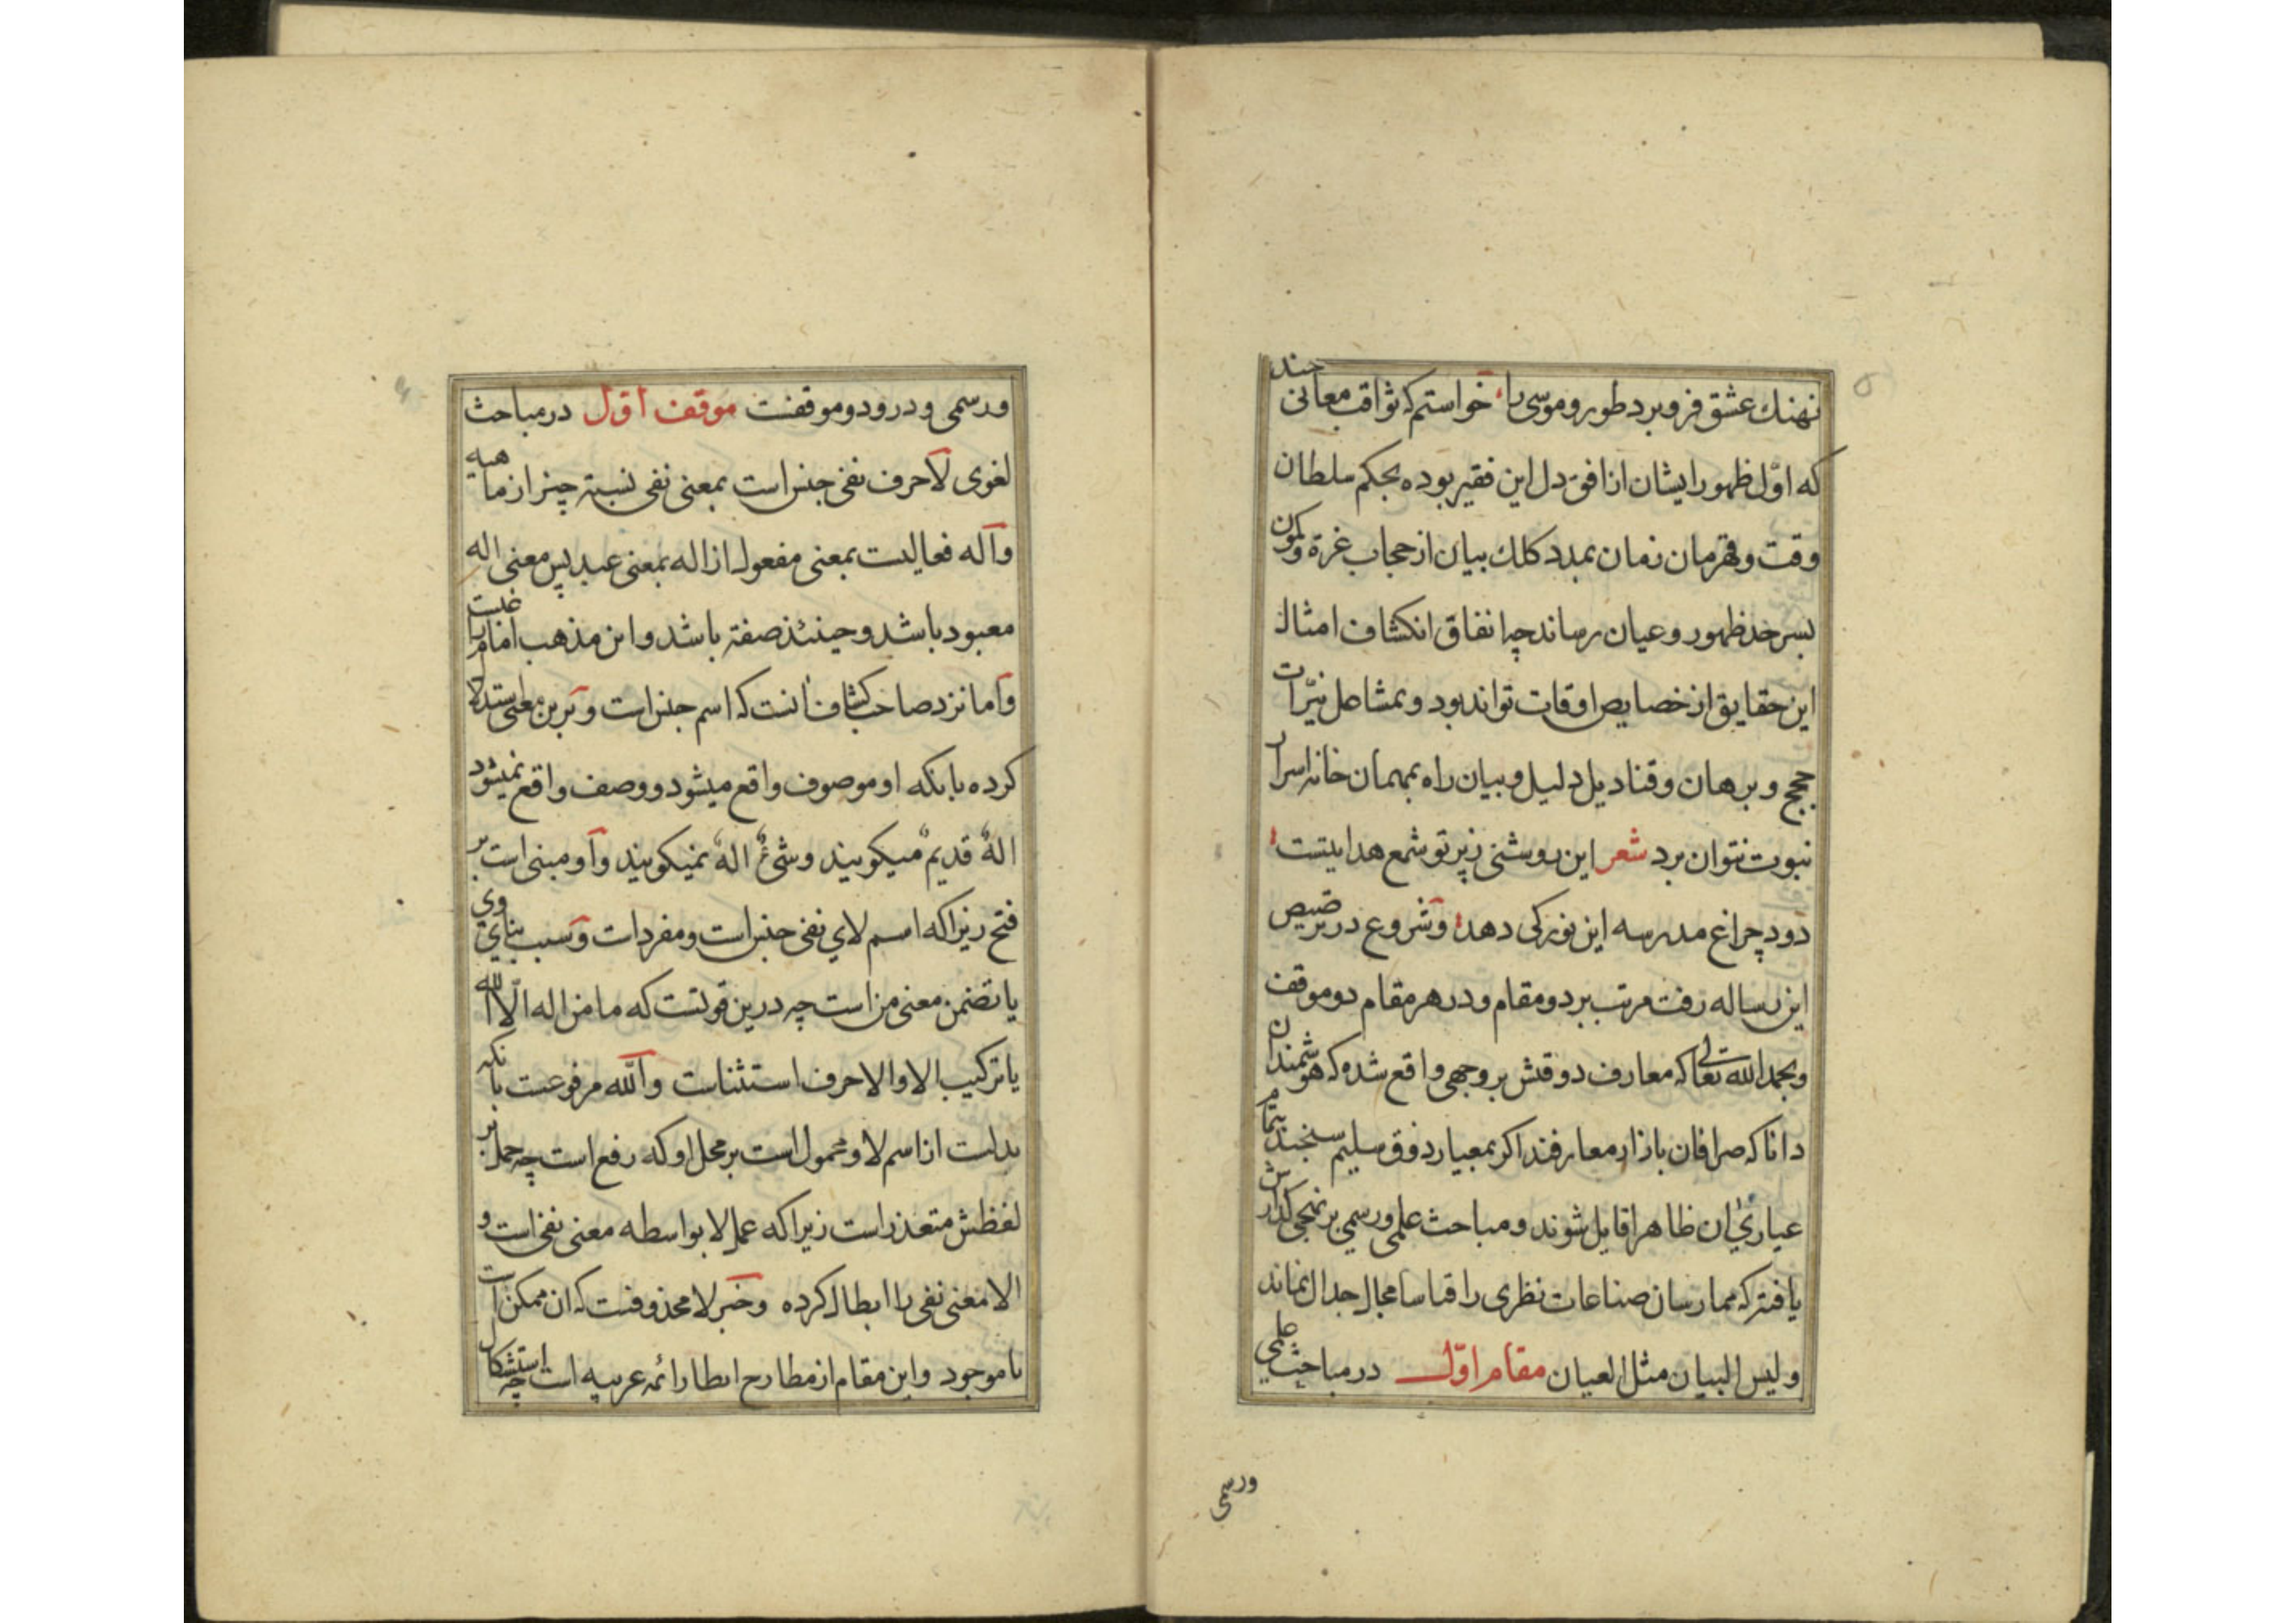 نهنك عشق فرو برد طور و موسى را خواستم كه ثواقب معانى چند
كه اوّل ظهور ايشان از افق دل اين فقير بوده بحكم سلطان
وقت و قهرمان زمان بمدد كلك بيان از حجاب غرة و كمون
بسرحد ظهور و عيان رساند چه اتفاق انكشاف امثال
اين حقايق از خصايص اوقات تواند بود و بمشاعل نيّرات
حجج و برهان و قناديل دليل و بيان راه بمهمان خانه اسرار
نبوت نتوان برد شعر اين روشنى ز پرتو شمع هدايتست
دود چراغ مدرسه اين نور كى دهد و شروع در ترصيص
اين رساله رفت مرتب بر دو مقام و در هر مقام دو موقف
و بحمد الله تعالى كه معارف ذوقش بر وجهى واقع شده كه هوشمندان
دانا كه صرافان بازار معارفند اكر بمعيار ذوق سليم سنجند بتمام
عيارئ ان ظاهرا قايل شوند و مباحث علمى و رسمي بر نهجى كذارش
يافته كه ممارسان صناعات نظرى را قياسا مجال جدال نماند
و ليس البيان مثل العيان مقام اوّل در مباحث علمي
ورسمى
ورسمى و درو دو موقفست موقف اوّل در مباحث
لغوى لا حرف نفى جنس است بمعنى نفى نسبة چيز از ماهيه
و اله فعاليست بمعنى مفعول از اله بمعنى عبد پس معنى اله
معبود باشد و حينئذ صفة باشد و اين مذهب امام راغبست
و اما نزد صاحب كشاف انست كه اسم جنس است و برين معنى استدلال
كرده بانكه او موصوف واقع ميشود و وصف واقع نميشود
الهٌ قديمٌ ميكويند و شئٌ الهٌ نميكويند و او مبنى است بر
فتح زيرا كه اسم لاي نفى جنس است و مفردات و سبب بناي وي
يا تضمن معنى من است چه درين قوتست كه ما من اله الّا الله
يا تركيب الا و الا حرف استثناست و الله مرفوعست بانكه
بدلست از اسم لا و محمول است بر محل او كه رفع است چه حمل بر
لفظش متعذر است زيرا كه عمل لا بواسطه معنى نفى است و
الا معنى نفى را ابطال كرده و خبر لا محذوفست كه ان ممكن است
يا موجود و اين مقام از مطارح انظار ائمه عربيه است چه استشكال